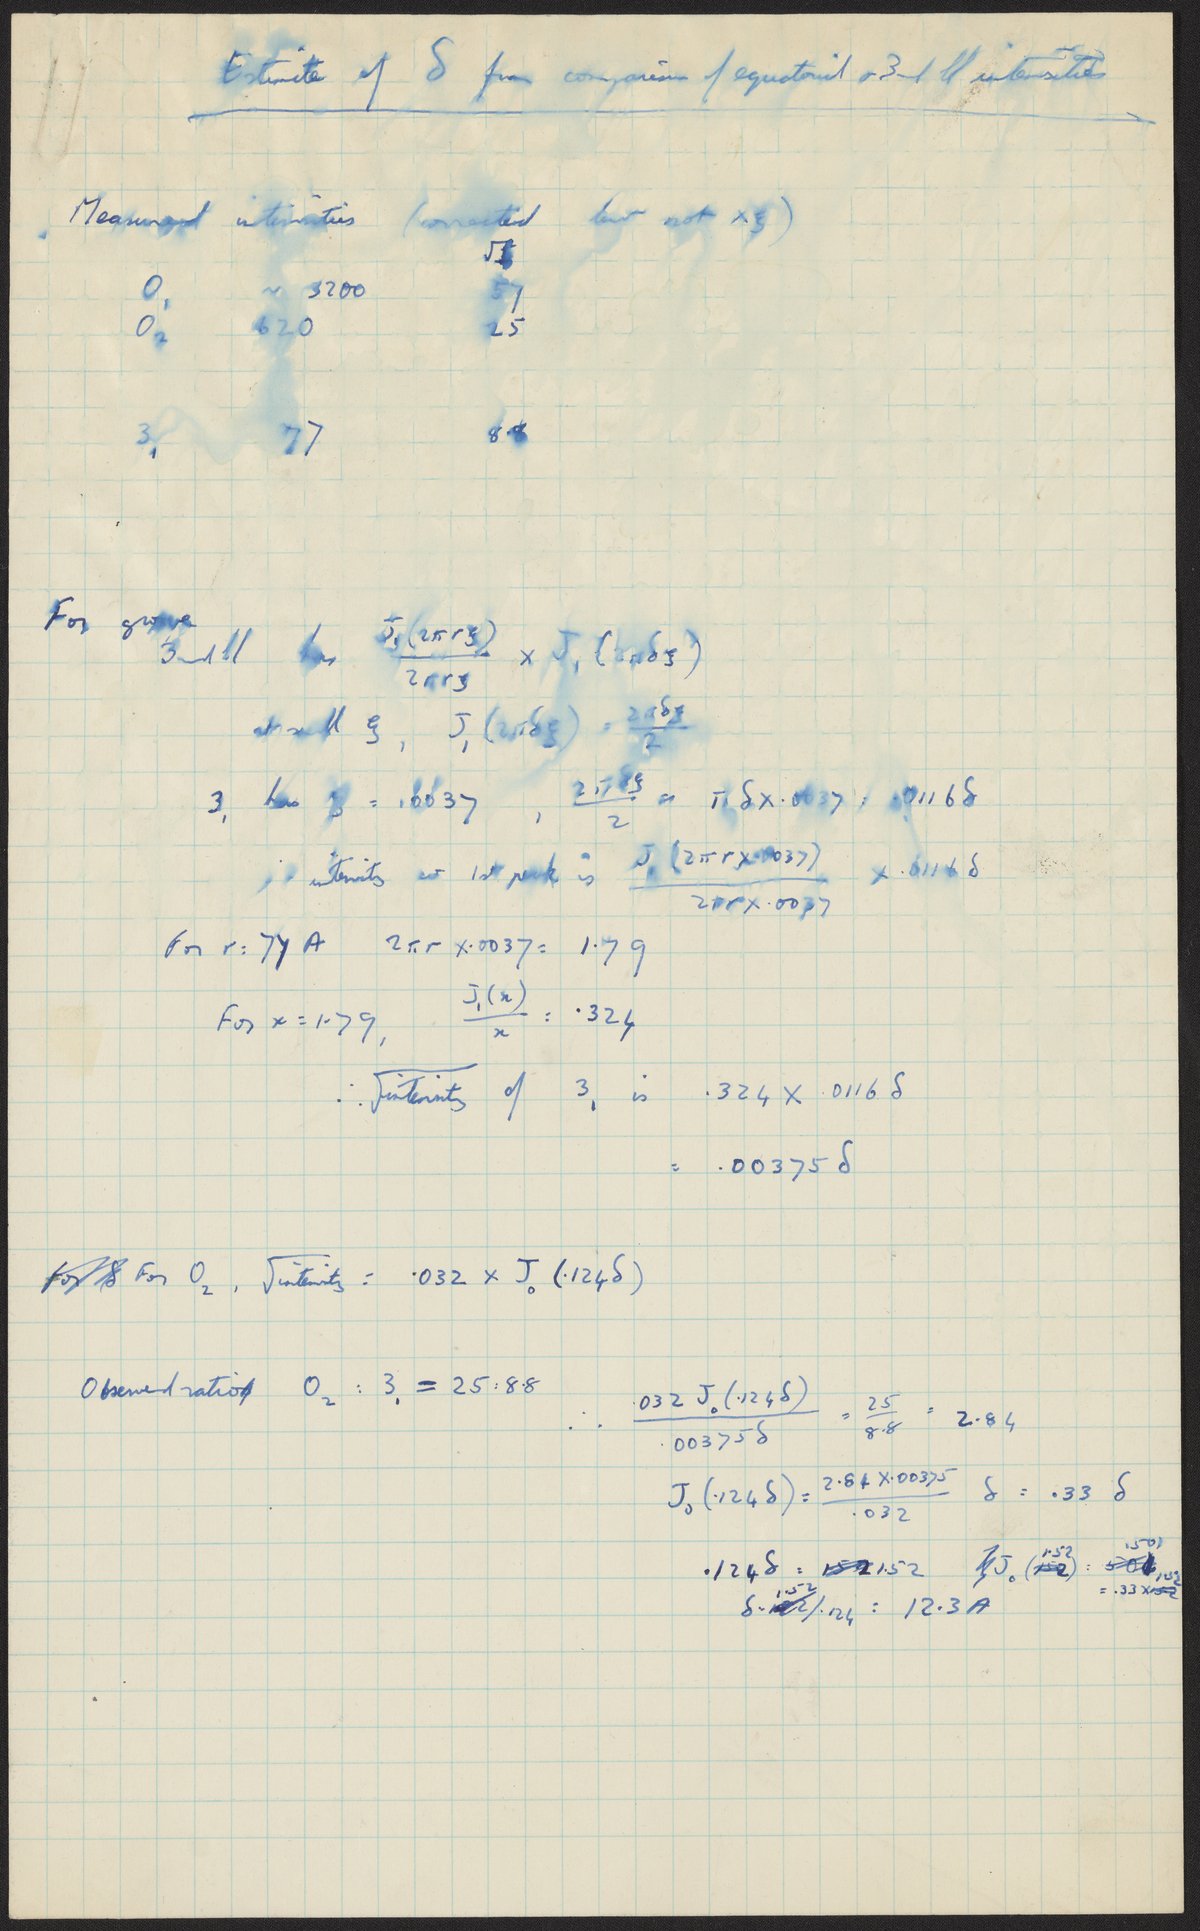 Estimate of δ from comparison of equatorial & 3rd ll intensities
Measured intensities (corrected but not × ξ)
√I
O₁ ~ 3200 57
O₂ 620 25
3₁ 77 8.8
For groove
3rd ll has J₁(2πrξ)/2πrξ × J₁(2πδξ)
at small ξ, J₁(2πδξ) = 2πδξ/2
3₁ has ξ = .0037, 2πδξ/2 = πδ×.0037 = .0116δ
∴ intensity at 1st peak is J₁(2πr×.0037)/2πr×.0037 × .0116δ
For r = 77 A 2πr×.0037 = 1.79
For x = 1.79, J₁(x)/x = .324
∴ √intensity of 3₁ is .324 × .0116δ
= .00375δ
For O₂, √intensity = .032 × J₀(.124δ)
Observed ratio O₂ : 3₁ = 25:8.8
∴ .032 J₀(.124δ)/.00375δ = 25/8.8 = 2.84
J₀(.124δ) = 2.84×.00375/.032 δ = .33 δ
.124δ = 1.52 J₀(1.52) = .501
= .33×1.52
δ = 1.52/.124 = 12.3 A